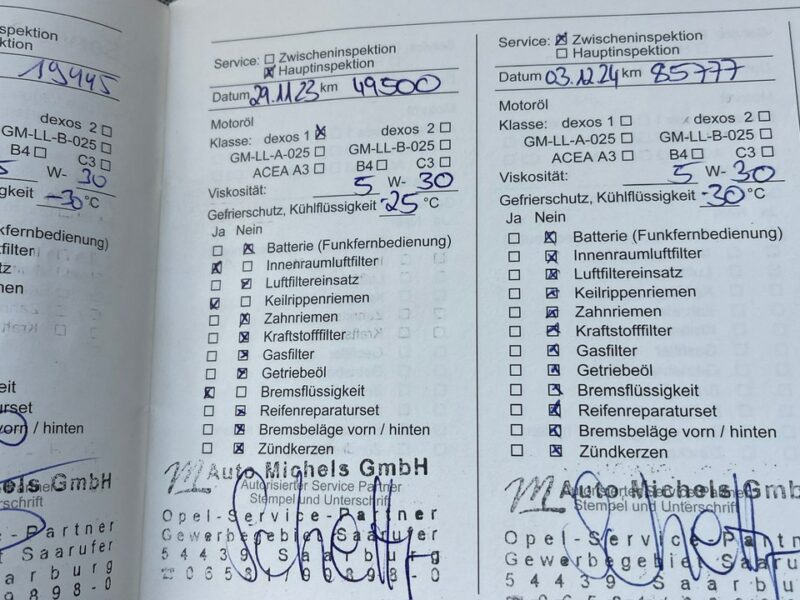 spektion
ktion
19445
dexos 2 ☐
GM-LL-B-025 ☐
B4 ☐ C3 ☐
5 W- 30
sigkeit -30 °C
nkfernbedienung)
filter
tz
men
eit
urset
vorn / hinten
hels GmbH
Partner
schrift
-Partner
t Saarufer
arburg
9898-0
Service: ☐ Zwischeninspektion
☒ Hauptinspektion
Datum 29.11.23 km 49500
Motoröl
Klasse: dexos 1 ☒ dexos 2 ☐
GM-LL-A-025 ☐ GM-LL-B-025 ☐
ACEA A3 ☐ B4 ☐ C3 ☐
Viskosität: 5 W- 30
Gefrierschutz, Kühlflüssigkeit -25 °C
Ja Nein
☐ ☒ Batterie (Funkfernbedienung)
☒ ☐ Innenraumluftfilter
☐ ☒ Luftfiltereinsatz
☒ ☐ Keilrippenriemen
☐ ☒ Zahnriemen
☐ ☒ Kraftstofffilter
☐ ☒ Gasfilter
☐ ☒ Getriebeöl
☒ ☐ Bremsflüssigkeit
☐ ☒ Reifenreparaturset
☐ ☒ Bremsbeläge vorn / hinten
☐ ☒ Zündkerzen
Auto Michels GmbH
Autorisierter Service Partner
Stempel und Unterschrift
Opel-Service-Partner
Gewerbegebiet Saarufer
54439 Saarburg
☎ 06581/9898-0
Service: ☒ Zwischeninspektion
☐ Hauptinspektion
Datum 03.12.24 km 85777
Motoröl
Klasse: dexos 1 ☐ dexos 2 ☐
GM-LL-A-025 ☐ GM-LL-B-025 ☐
ACEA A3 ☐ B4 ☐ C3 ☐
Viskosität: 5 W- 30
Gefrierschutz, Kühlflüssigkeit -30 °C
Ja Nein
☐ ☒ Batterie (Funkfernbedienung)
☐ ☒ Innenraumluftfilter
☐ ☒ Luftfiltereinsatz
☐ ☒ Keilrippenriemen
☐ ☒ Zahnriemen
☐ ☒ Kraftstofffilter
☐ ☒ Gasfilter
☐ ☒ Getriebeöl
☐ ☒ Bremsflüssigkeit
☐ ☒ Reifenreparaturset
☐ ☒ Bremsbeläge vorn / hinten
☐ ☒ Zündkerzen
Auto Michels Gmb
Stempel und Unterschrift
Opel-Service-Partn
Gewerbegebiet Saaru
54439 Saarbu